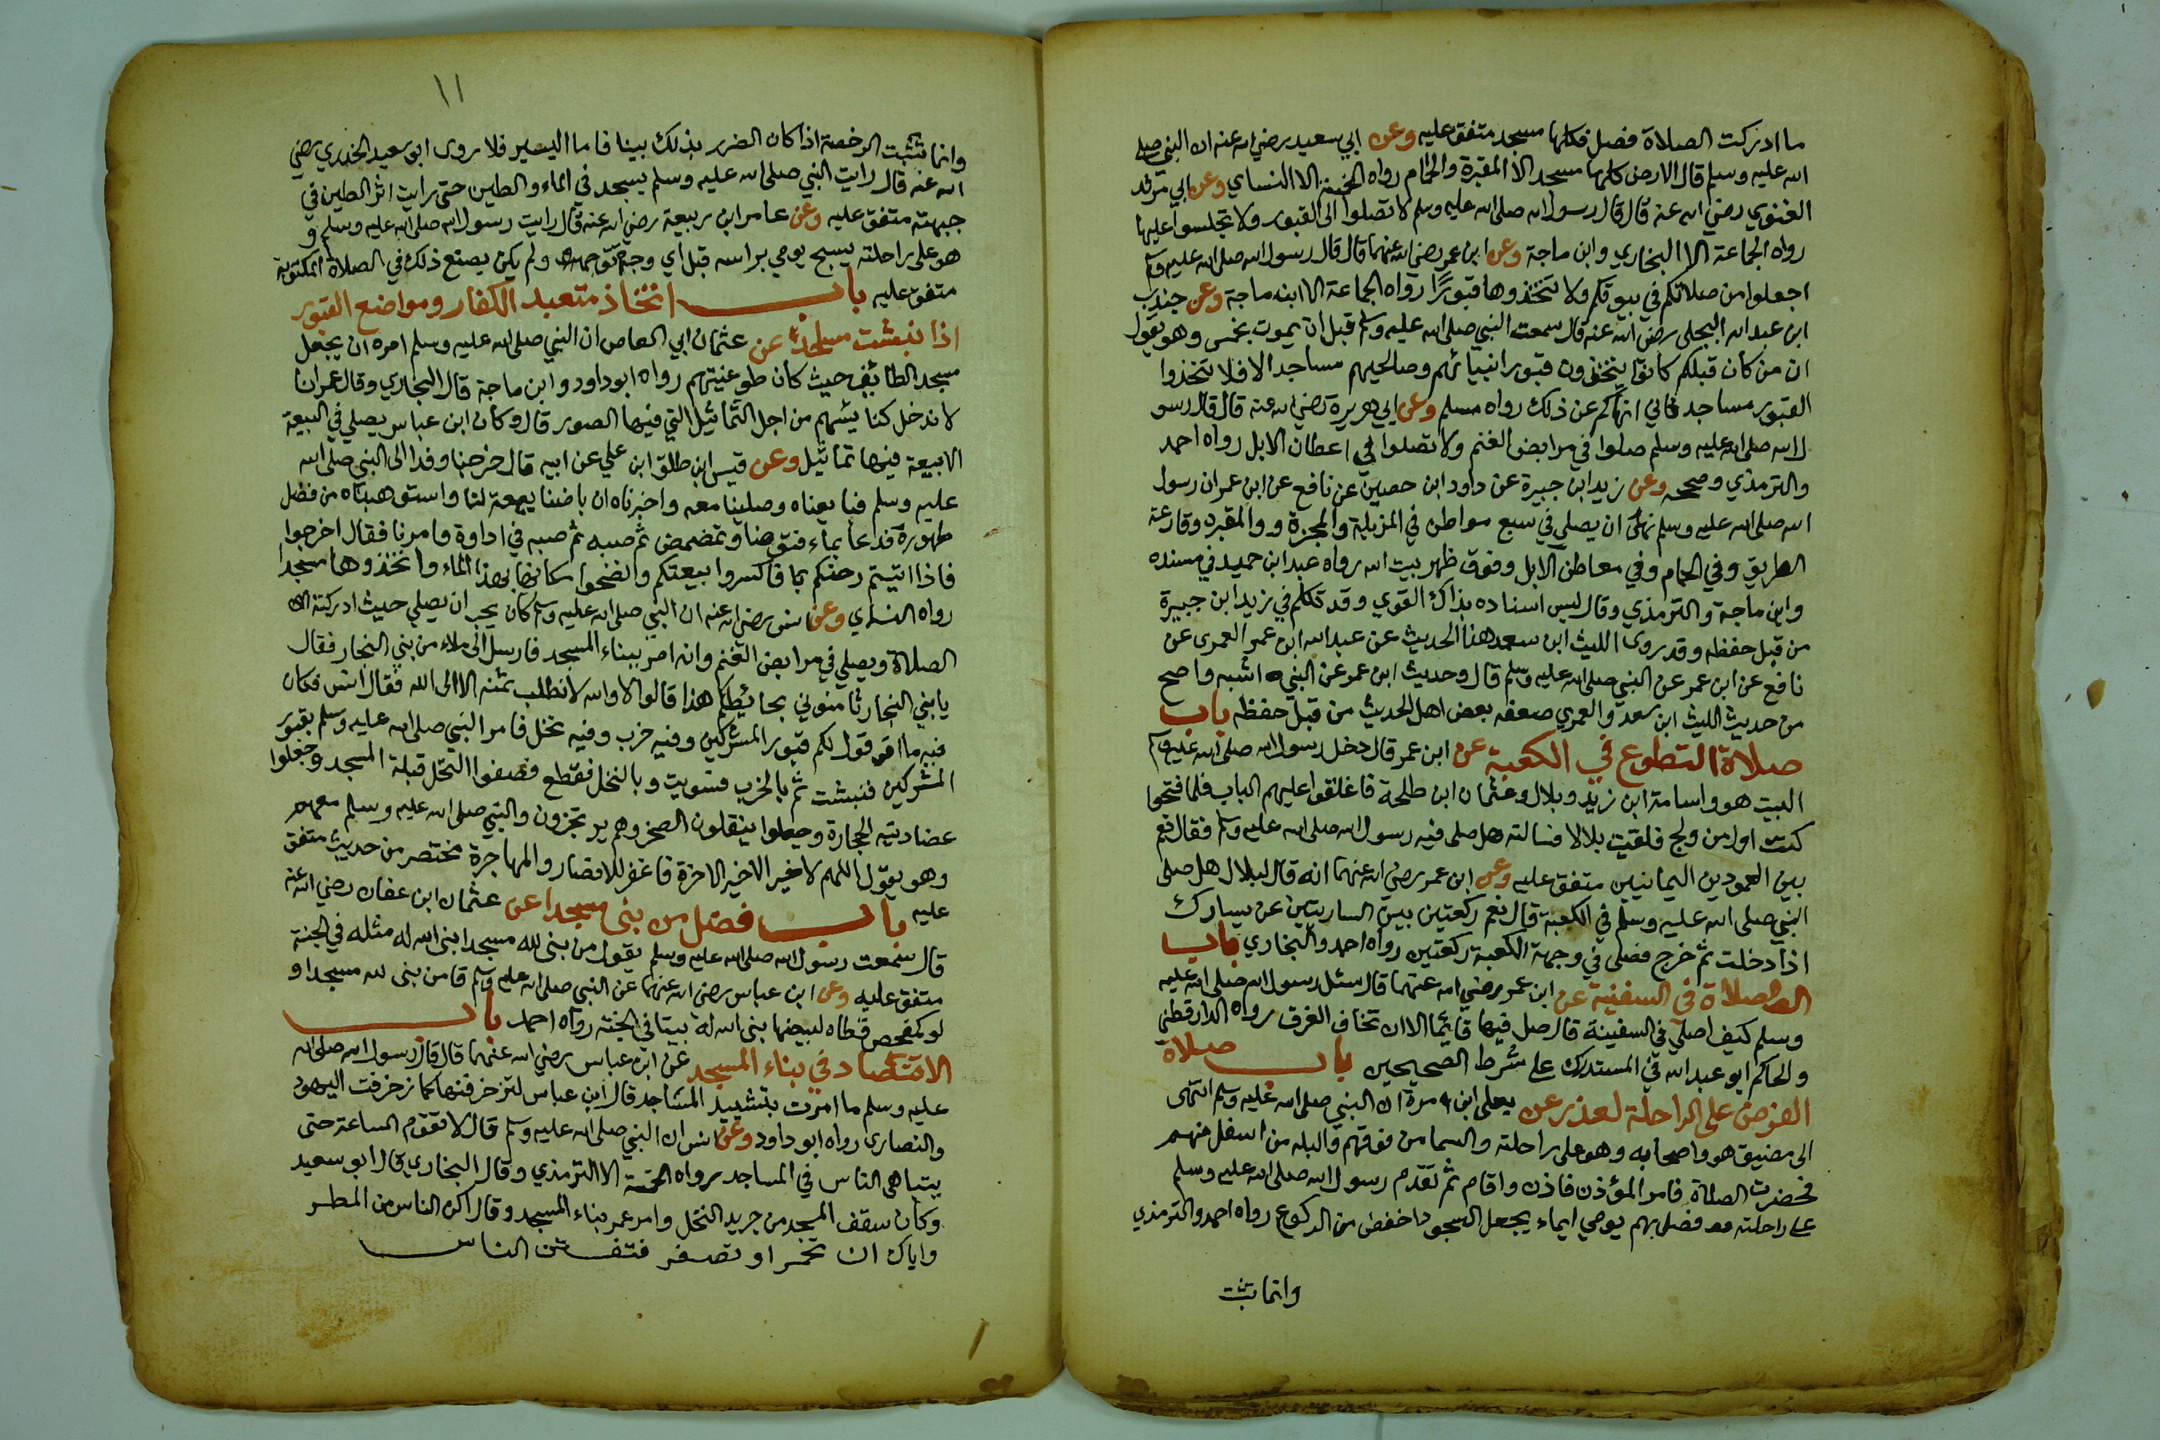 ما ادركت الصلاة فصل فكلها مسجد متفق عليه وعن ابي سعيد رضي الله عنه ان النبي صلى
الله عليه وسلم قال الارض كلها مسجد الا المقبرة والحمام رواه الخمسة الا النساي وعن ابي مرثد
الغنوي رضي الله عنه قال قال رسول الله صلى الله عليه وسلم لا تصلوا الى القبور ولا تجلسوا عليها
رواه الجماعة الا البخاري وابن ماجة وعن ابن عمر رضي الله عنهما قال قال رسول الله صلى الله عليه وسلم
اجعلوا من صلاتكم في بيوتكم ولا تتخذوها قبورًا رواه الجماعة الا ابنه ماجة وعن جندب
ابن عبد الله البجلي رضي الله عنه قال سمعت النبي صلى الله عليه وسلم قبل ان يموت بخمس وهو يقول
ان من كان قبلكم كانوا يتخذون قبور انبيائهم وصالحيهم مساجد الا فلا تتخذوا
القبور مساجد فاني انهاكم عن ذلك رواه مسلم وعن ابي هريرة رضي الله عنه قال قال رسو
ل الله صلى الله عليه وسلم صلوا في مرابض الغنم ولا تصلوا في اعطان الابل رواه احمد
والترمذي وصححه وعن زيد ابن جبيرة عن داود ابن حصين عن نافع عن ابن عمر ان رسول
الله صلى الله عليه وسلم نهى ان يصلي في سبع مواطن في المزبلة والمجزرة و والمقبره وقارعة
الطريق وفي الحمام وفي معاطن الابل وفوق ظهر بيت الله رواه عبد ابن حميد في مسنده
وابن ماجة والترمذي وقال ليس اسناده بذاك القوي وقد تكلم في زيد ابن جبيرة
من قبل حفظه وقد روى الليث ابن سعد هذا الحديث عن عبد الله ابن عمر العمرى عن
نافع عن ابن عمر عن النبي صلى الله عليه وسلم قال وحديث ابن عمر عن النبي ه اشبه واصح
من حديث الليث ابن سعد والعمري ضعفه بعض اهل الحديث من قبل حفظه باب
صلاة التطوع في الكعبة عن ابن عمر قال دخل رسول الله صلى الله عليه وسلم
البيت هو واسامة ابن زيد وبلال وعثمان ابن طلحة فاغلقوا عليهم الباب فلما فتحوا
كنت اول من ولج فلقيت بلالا فسالته هل صلى فيه رسول الله صلى الله عليه وسلم فقال نعم
بين العمودين اليمانيين متفق عليه وعن ابن عمر رضي الله عنهما انه قال لبلال هل صلى
النبي صلى الله عليه وسلم في الكعبة قال نعم ركعتين بين الساريتين عن يسارك
اذا دخلت ثم خرج فصلى في وجهة الكعبة ركعتين رواه احمد والبخاري باب
الصلاة في السفينة عن ابن عمر رضي الله عنهما قال سئل رسول الله صلى الله عليه
وسلم كيف اصلي في السفينة قال صل فيها قائما الا ان تخاف الغرق رواه الدارقطني
والحاكم ابو عبد الله في المستدرك على شرط الصحيحين باب صلاة
الفرض على الراحلة لعذر عن يعلى ابن مرة ان النبي صلى الله عليه وسلم انتهى
الى مضيق هو واصحابه وهو على راحلته والسما من فوقهم والبله من اسفل منهم
فحضرت الصلاة فامر المؤذن فاذن واقام ثم تقدم رسول الله صلى الله عليه وسلم
على راحلته فصلى بهم يومي ايماء يجعل السجود اخفض من الركوع رواه احمد والترمذي
وانما تثبت
١١
وانما تثبت الرخصة اذا كان الضرر بذلك بينا فاما اليسير فلا روى ابو سعيد الخدري رضي
الله عنه قال رايت النبي صلى الله عليه وسلم يسجد في الماء والطين حتى رايت اثر الطين في
جبهته متفق عليه وعن عامر ابن ربيعة رضي الله عنه قال رايت رسول الله صلى الله عليه وسلم و
هو على راحلته يسبح يومي براسه قبل اي وجهة توجه ولم يكن يصنع ذلك في الصلاة المكتوبة
متفق عليه باب اتخاذ متعبد الكفار ومواضع القبور
اذا نبشت مساجد عن عثمان ابي العاص ان النبي صلى الله عليه وسلم امره ان يجعل
مسجد الطائف حيث كان طوغيتهم رواه ابو داود وابن ماجة قال البخاري وقال عمر انا
لا ندخل كنايسهم من اجل التماثيل التي فيها الصور قال وكان ابن عباس يصلي في البيعة
الا بيعة فيها تماثيل وعن قيس ابن طلق ابن علي عن ابيه قال خرجنا وفدا الى النبي صلى الله
عليه وسلم فبايعناه وصلينا معه واخبرناه ان بارضنا بيعة لنا واستوهبناه من فضل
طهوره فدعا بماء فتوضا وتمضمض ثم صبه ثم صبه في اداوة وامرنا فقال اخرجوا
فاذا اتيتم رضكم بما فاكسروا بيعتكم وانضحوا مكانها بهذا الماء واتخذوها مسجدا
رواه النساي وعن انس رضي الله عنه ان النبي صلى الله عليه وسلم كان يحب ان يصلي حيث ادركته
الصلاة ويصلي في مرابض الغنم وانه امر ببناء المسجد فارسل الى ملاء من بني النجار فقال
يا بني النجار ثامنوني بحائطكم هذا قالوا لا والله لا نطلب ثمنه الا الى الله فقال انس فكان
فيه ما اقول لكم قبور المشركين وفيه خرب وفيه نخل فامر النبي صلى الله عليه وسلم بقبور
المشركين فنبشت ثم بالخرب فسويت وبالنخل فقطع فصفوا النخل قبلة المسجد وجعلوا
عضادتيه الحجارة وجعلوا ينقلون الصخر وهم يرتجزون والنبي صلى الله عليه وسلم معهم
وهو يقول اللهم لا خير الا خير الاخرة فاغفر للانصار والمهاجرة مختصر من حديث متفق
عليه باب فضل من بنى مسجدا عن عثمان ابن عفان رضي الله عنه
قال سمعت رسول الله صلى الله عليه وسلم يقول من بنى لله مسجدا بنى الله له مثله في الجنة
متفق عليه وعن ابن عباس رضي الله عنهما عن النبي صلى الله عليه وسلم قا من بنى لله مسجدا و
لو كمفحص قطاه لبيضها بنى الله له بيتا في الجنة رواه احمد باب
الاقتصاد في بناء المسجد عن ابن عباس رضي الله عنهما قال قال رسول الله صلى الله
عليه وسلم ما امرت بتشييد المساجد قال ابن عباس لتزخرفنها كما زخرفت اليهود
والنصارى رواه ابو داود وعن انس ان النبي صلى الله عليه وسلم قال لا تقوم الساعة حتى
يتباهى الناس في المساجد رواه الخمسة الا الترمذي وقال البخاري قال ابو سعيد
وكان سقف المسجد من جريد النخل وامر عمر ببناء المسجد وقال اكن الناس من المطر
واياك ان تحمر او تصفر فتفتن الناس